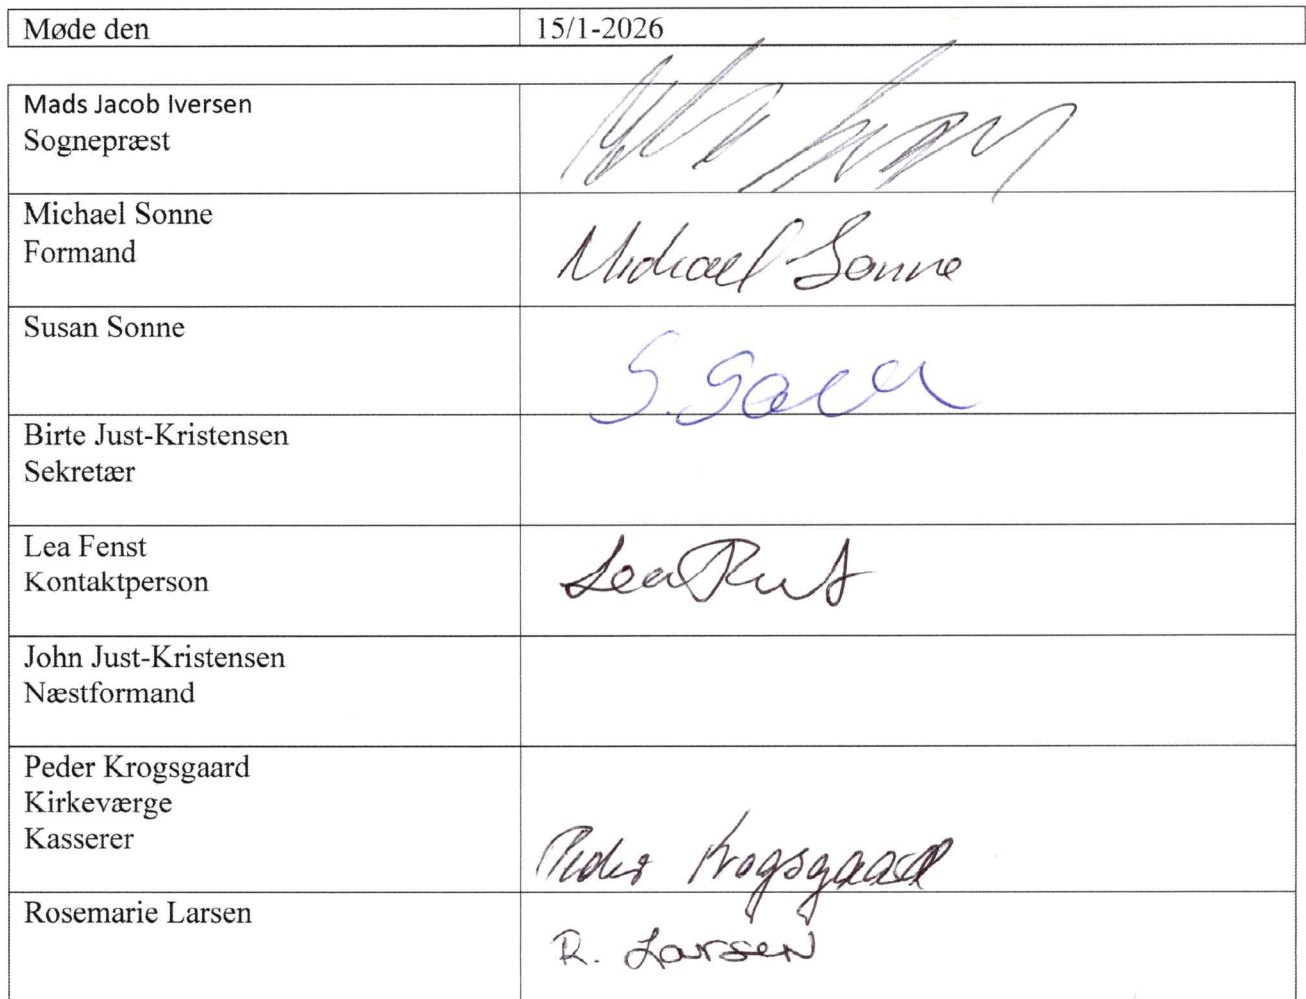 Møde den 15/1-2026
Mads Jacob Iversen
Sognepræst
Michael Sonne
Formand
Michael Sonne
Susan Sonne
S.
Birte Just-Kristensen
Sekretær
Lea Fenst
Kontaktperson
Lea
John Just-Kristensen
Næstformand
Peder Krogsgaard
Kirkeværge
Kasserer
Peder Krogsgaard
Rosemarie Larsen
R. Larsen